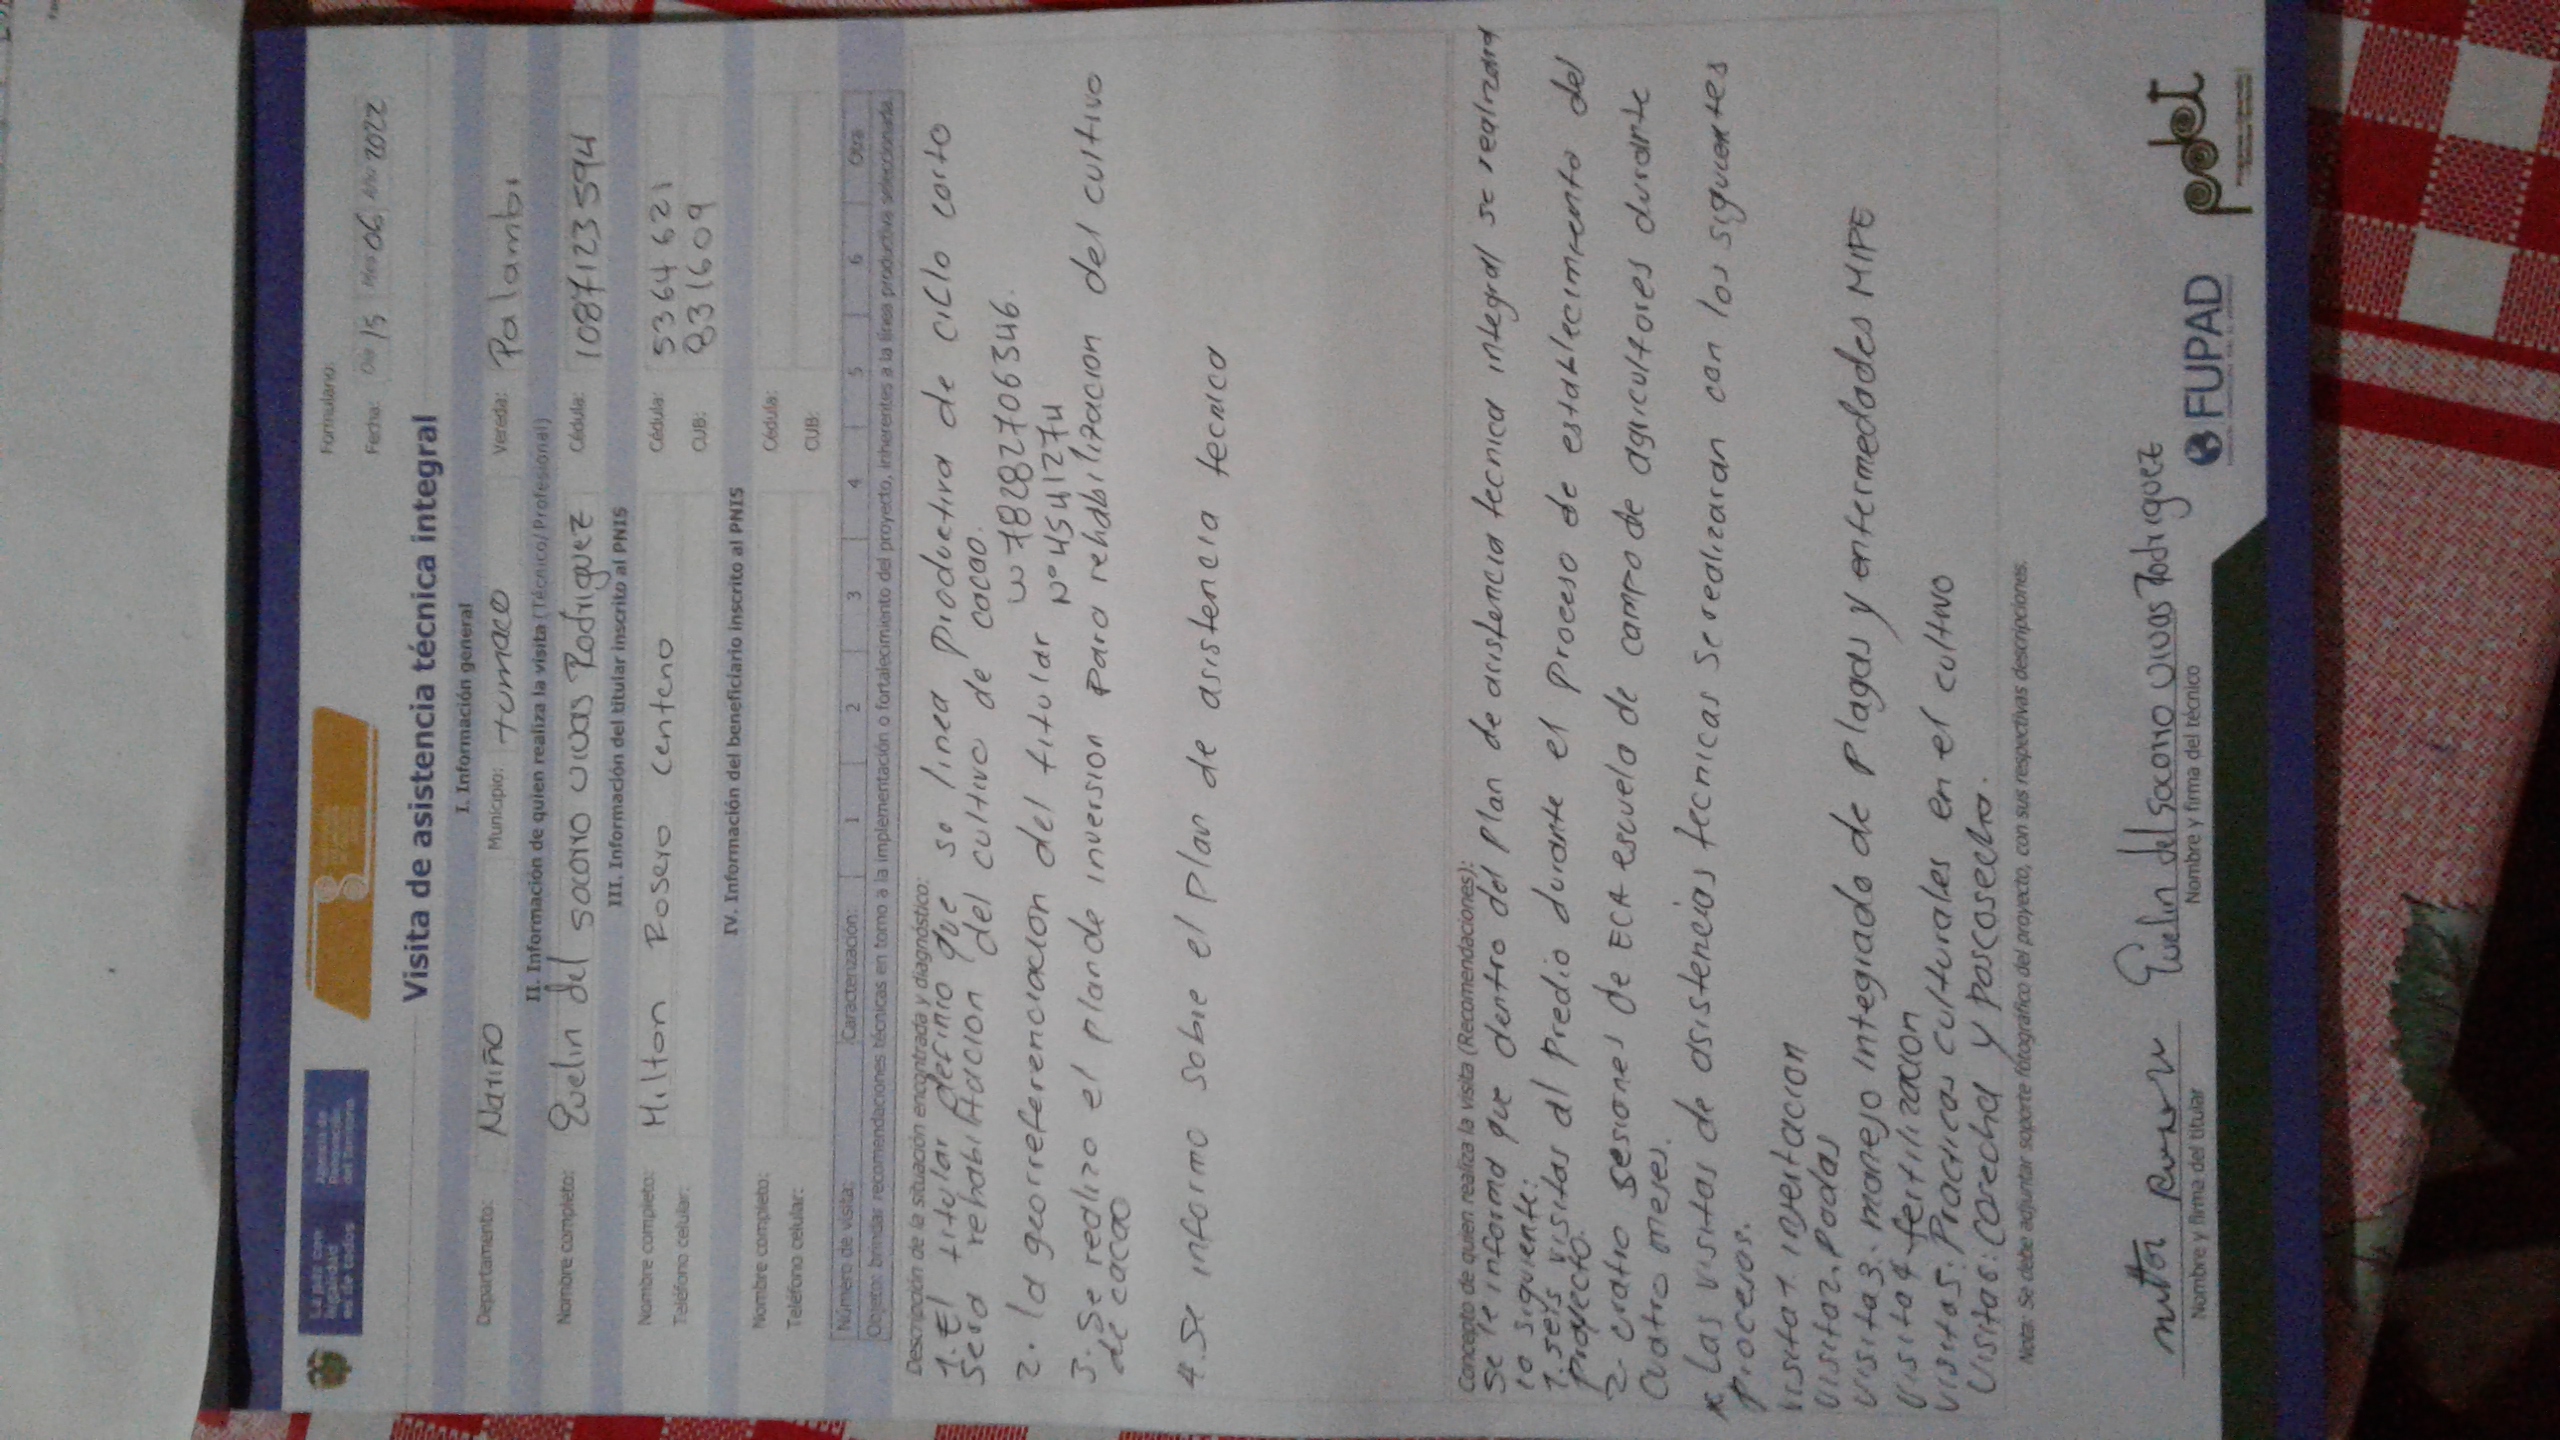 La paz con
legalidad
es de todos
Agencia de
Renovación
del Territorio
Formulario:
Fecha: Día 15 Mes 06 Año 2022
Visita de asistencia técnica integral
I. Información general
Departamento: Nariño Municipio: tumaco Vereda: Palambi
II. Información de quien realiza la visita (Técnico/Profesional)
Nombre completo: Evelin del socorro vivas Rodriguez Cédula: 1087123594
III. Información del titular inscrito al PNIS
Nombre completo: Milton Rosero Centeno Cédula: 5364621
Teléfono celular: CUB: 831609
IV. Información del beneficiario inscrito al PNIS
Nombre completo: Cédula:
Teléfono celular: CUB:
Número de visita: Caracterización: 1 2 3 4 5 6 Otra
Objeto: brindar recomendaciones técnicas en torno a la implementación o fortalecimiento del proyecto, inherentes a la línea productiva seleccionada.
Descripción de la situación encontrada y diagnóstico:
1. El titular definio que so linea productiva de ciclo corto
sera rehabilitacion del cultivo de cacao.
2. la georreferenciacion del titular W 782827063546.
N° 4541274
3. Se realizo el plan de inversion para rehabilitacion del cultivo
de cacao
4. Se informo sobre el plan de asistencia tecnica
Concepto de quien realiza la visita (Recomendaciones):
Se le informa que dentro del plan de asistencia tecnica integral se realizara
lo siguiente:
1. seis visitas al Predio durante el Proceso de establecimiento del
proyecto.
2. cuatro sesiones de ECA escuela de campo de agricultores durante
cuatro meses.
* Las visitas de asistencias tecnicas se realizaran con los siguientes
procesos.
visita 1. injertacion
visita 2. Podas
visita 3. manejo integrado de plagas y enfermedades MIPE
visita 4 fertilizacion
visita 5. Practicas culturales en el cultivo
visita 6: cosecha y poscosecha.
Nota: Se debe adjuntar soporte fotográfico del proyecto, con sus respectivas descripciones.
Evelin del socorro vivas Rodriguez
Nombre y firma del titular Nombre y firma del técnico
FUPAD
pdet